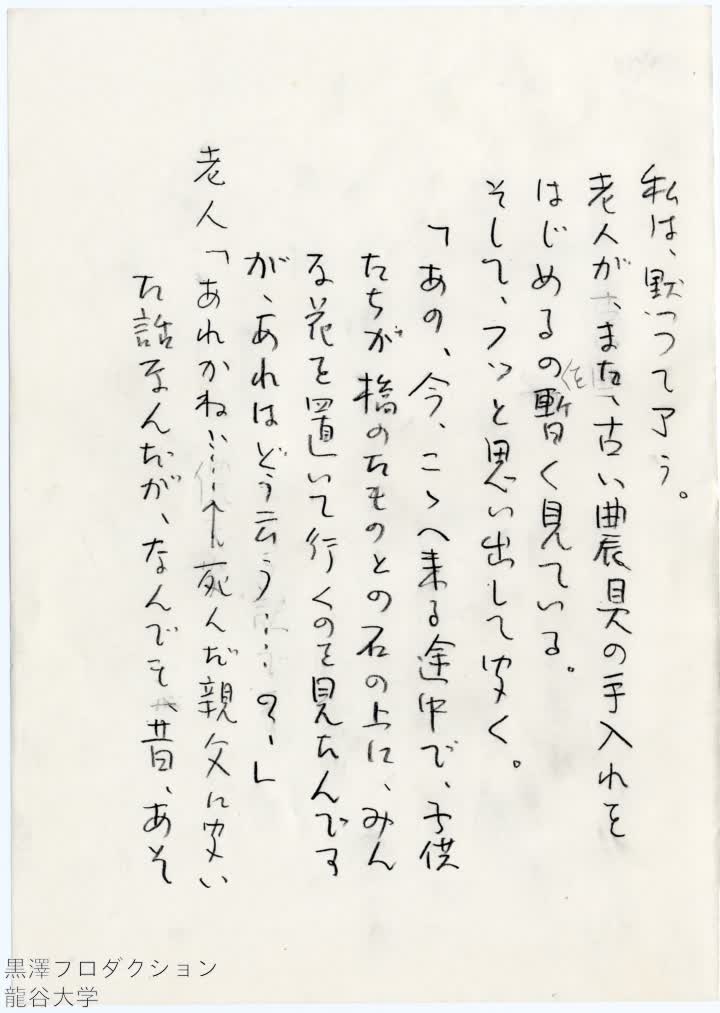 私は、黙つて了う。
老人が、また、古い農具の手入れを
はじめるの暫く見ている。
そして、フッと思い出して聞く。
「あの、今、こゝへ来る途中で、子供
たちが橋のたもとの石の上に、みん
な花を置いて行くのを見たんです
が、あれはどう云う……の、」
老人「あれかね……死んだ親父に聞い
た話なんだが、なんでも昔、あそ
黒澤プロダクション
龍谷大学